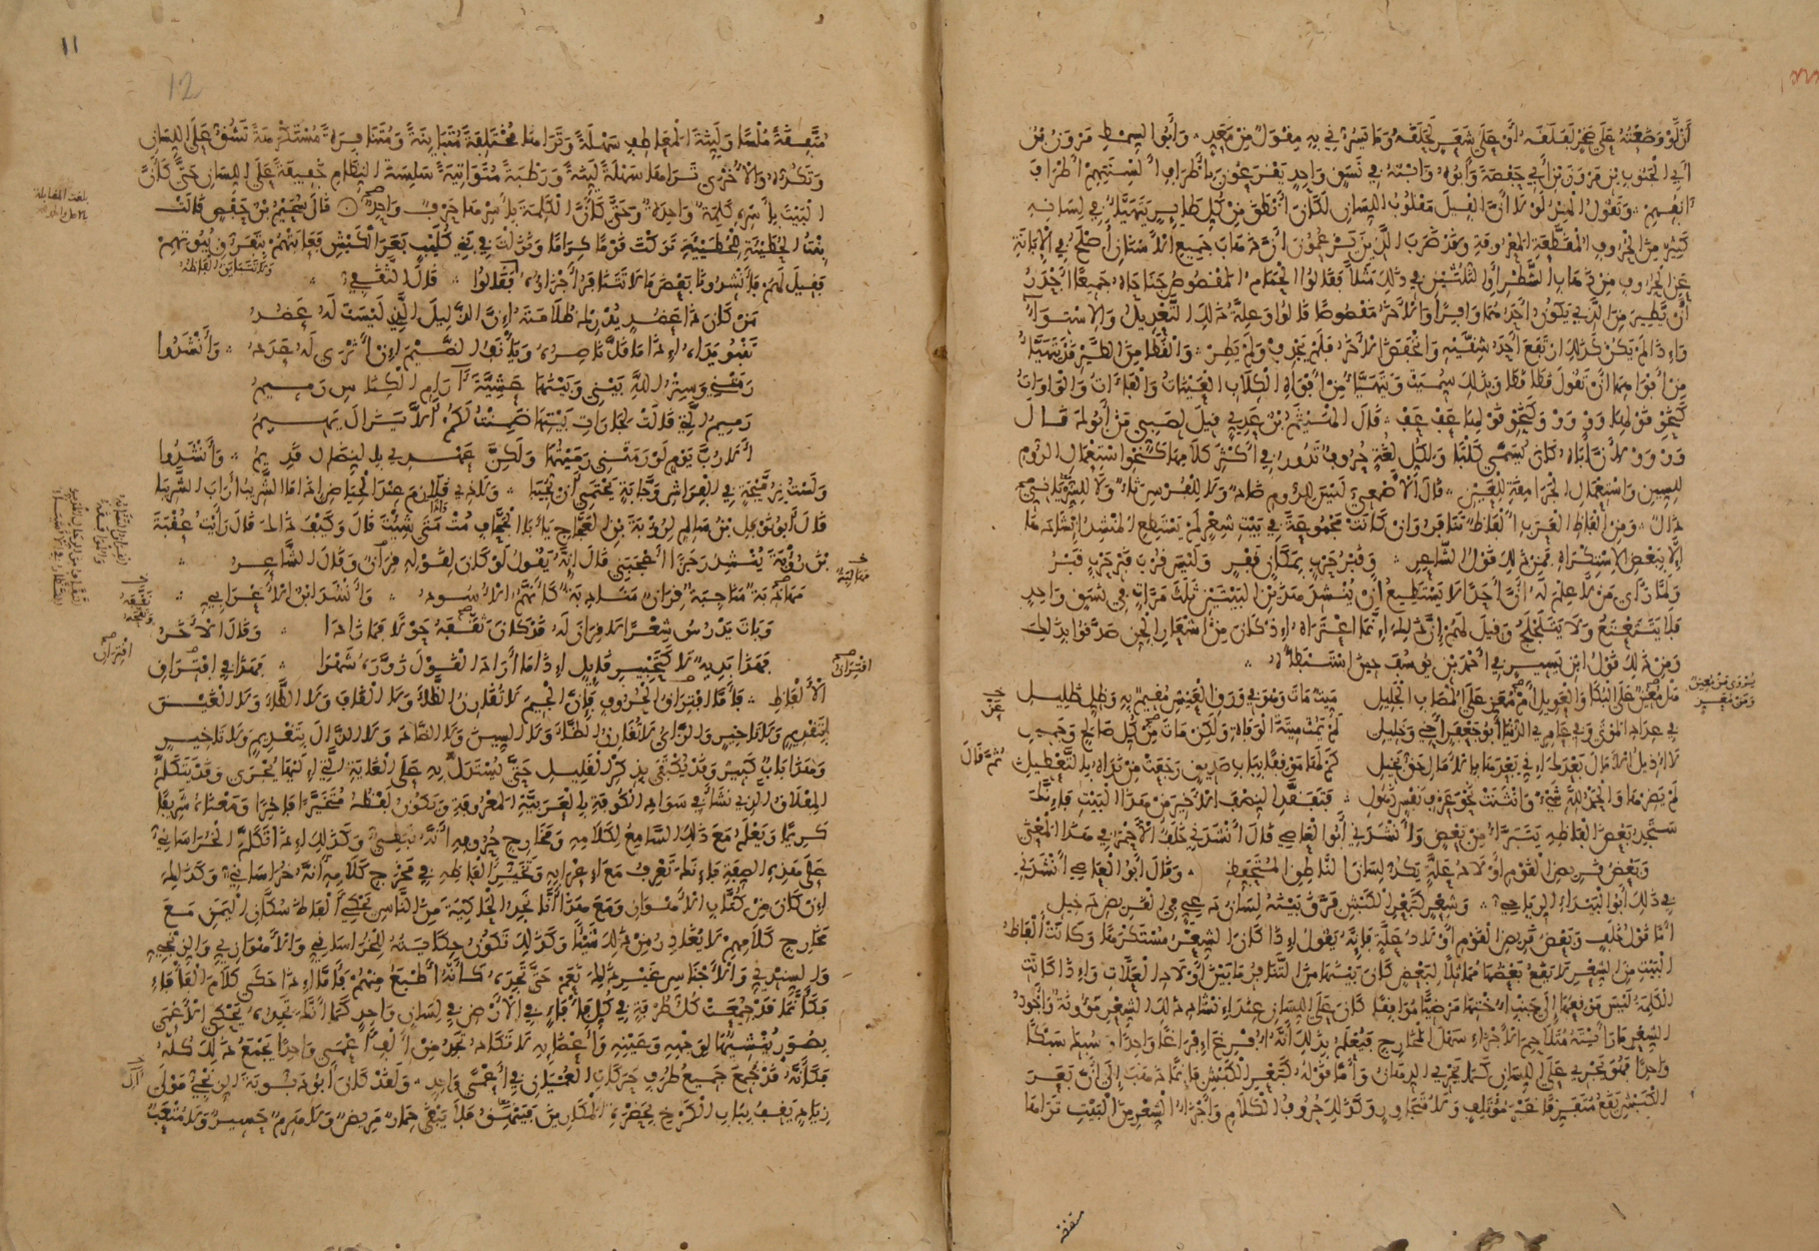 أن لو وضعته على صخر لفلقه أو على شعر لحلقه وما يسرني به مقول من معد وأبوا السمط مرون بن
أبي الجنوب بن مرون بن أبي حفصة وأبوه وابنه في نسق واحد يقرعون بأطراف ألسنتهم أطراف
آنفهم وتقول الهند لولا أن الفيل مقلوب اللسان لكان أنطق من كل طاير يتهيأ في لسانه
كثير من الحروف المقطعة المعروفة وقد ضرب الذين يزعمون أن ذهاب جميع الأسنان أصلح في الإبانة
عن الحروف من ذهاب الشطر أو الثلثين في ذلك مثلا فقالوا الحمام المقصوص جناحاه جميعا أجدر
أن يطير من الذي يكون أحدهما وافرا والآخر مقصوصا قالوا وعلة ذلك التعديل والاستواء
وإذا لم يكن كذلك ارتفع أحد شقيه وانخفض الآخر فلم يجدف ولم يطر والقطا من الطير قد يتهيأ
من أفواهها أن تقول قطا قطا وبذلك سميت ويتهيأ من أفواه الكلاب العينات والفاءات والواوات
كنحو قولها وو وو وكنحو قولها عف عف قال الهيثم بن عدي قيل لصبي من أبوك قال
وو وو لأن أباه كان يسمى كلبا ولكل لغة حروف تدور في أكثر كلامها كنحو استعمال الروم
للسين واستعمال الجرامقة للعين قال الأصمعي ليس للروم ضاد ولا للفرس ثاء ولا للسرياني
ذال ومن ألفاظ العرب ألفاظ تتنافر وإن كانت مجموعة في بيت شعر لم يستطع المنشد إنشادها
إلا ببعض الاستكراه فمن ذلك قول الشاعر وقبر حرب بمكان قفر وليس قرب قبر حرب قبر
ولما رأى من لا علم له أن أحدا لا يستطيع أن ينشد هذين البيتين ثلث مرات في نسق واحد
فلا يتتعتع ولا يتلجلج وقيل لهم إن ذلك إنما اعتراه إذ كان من أشعار الجن صدقوا بذلك
ومن ذلك قول ابن يسير في أحمد بن يوسف حين استبطأه
هل معين على البكا والعويل أم معز على المصاب الجليل ميت مات وهو في ورق العيش مقيم به وظل ظليل
في عداد الموتى وفي عامر الدنيا أبو جعفر أخي وخليلي لم يمت ميتة الوفاة ولكن مات من كل صالح وجميل
لا أذيل الآمال بعدك إني بعدها بالآمال حق بخيل كم لها من وقفا بباب صديق رجعت من نداه بالتعطيل ثم قال
لم يضرها والحمد لله شيء وانثنت نحو عزف نفس ذهول فتفقد النصف الأخير من هذا البيت فإنك
ستجد بعض ألفاظه يتبرأ من بعض وأنشدني أبوا العاصي قال أنشدني خلف الأحمر في هذا المعنى
وبعض قريض القوم أولاد علة يكد لسان الناطق المتحفظ وقال أبوا العاصي أنشدني
في ذلك أبوا البيداء الرياحي وشعر كبعر الكبش فرق بينه لسان دعي في القريض دخيل
أما قول خلف وبعض قريض القوم أولاد علة فإنه يقول إذا كان الشعر مستكرها وكانت ألفاظ
البيت من الشعر لا يقع بعضها مماثلا لبعض كان بينها من التنافر ما بين أولاد العلات وإذا كانت
الكلمة ليس موقعها إلى جنب أختها مرضيا موافقا كان على اللسان عند إنشاد ذلك الشعر مؤونة وأجود
الشعر ما رأيته متلاحم الأجزاء سهل المخارج فيعلم بذلك أنه أفرغ إفراغا واحدا وسبك سبكا
واحدا فهو يجري على اللسان كما يجري الدهان وأما قوله كبعر الكبش فإنما ذهب إلى أن بعر
الكبش يقع متفرقا غير مؤتلف ولا متجاور وكذلك حروف الكلام وأجزاء الشعر من البيت تراها
11
12
متفقة ملسا ولينة المعاطف سهلة وتراها مختلفة متباينة ومتنافرة مستكرهة تشق على اللسان
وتكده والأخرى تراها سهلة لينة ورطبة متواتية سلسة النظام خفيفة على اللسان حتى كأن
البيت بأسره كلمة واحدة وحتى كأن الكلمة بأسرها حرف واحد قال سحيم بن حفص قالت
بنت الحطيئة للحطيئة تركت قوما كراما ونزلت في بني كليب بعر الكبش فعابتهم بتفرق بيوتهم
فقيل لهم فأنشدونا بعض ما لا تتنافر أجزاؤه فقالوا قال الثقفي
من كان ذا عضد يدرك ظلامته إن الذليل الذي ليست له عضد
تنبو يداه إذا ما قل ناصره ويأنف الضيم إن أثرى له عدد وأنشدوا
رمتني وستر الله بيني وبينها عشية آرام الكناس رميم
رميم التي قالت لجارات بيتها ضمنت لكم ألا يزال يهيم
ألا رب يوم لو رمتني رميتها ولكن عهدي بالنضال قديم وأنشدوا
ولست بدميجة في الفراش وجابة يحتمي أن يجيبا ولا ذي قلازم عند الحياض إذا ما الشريب أراب الشريبا
قال أبو نوفل بن سالم لرؤبة بن العجاج يا أبا الجحاف مت متى شئت قال وكيف ذاك قال رأيت عقبة
بن رؤبة ينشد رجزا أعجبني قال إنه يقول لو كان لقوله قران وقال الشاعر
مهاذبة مناجبة قران منادبة كأنهم الأسود وأنشد ابن الأعرابي
وبات يدرس شعرا لا قران له قد كان ثقفه حولا فما زادا وقال الآخر
فهذا بديه لا كتحبير قايل إذا ما أراد القول زوره شهرا فهذا في اقتران
الألفاظ فأما افتراق الحروف فإن الجيم لا تقارن الظاء ولا القاف ولا الطاء ولا الغين
بتقديم ولا تاخير والزاي لا تقارن الظاء ولا السين ولا الضاد ولا الذال بتقديم ولا تاخير
وهذا باب كبير وقد يكتفى بذكر القليل حتى يستدل به على الغاية التي إليها يجرى وقد يتكلم
المغلاق الذي نشأ في سواد الكوفة بالعربية المعروفة ويكون لفظه متخيرا فاخرا ومعناه شريفا
كريما ويعلم مع ذلك السامع لكلامه ومخارج حروفه أنه نبطي وكذلك إذا تكلم الخراساني
على هذه الصفة فإنك تعرف مع إعرابه وتخير ألفاظه في مخرج كلامه أنه خراساني وكذلك
إن كان من كتاب الأهواز ومع هذا أنا نجد الحاكية من الناس يحكي ألفاظ سكان اليمن مع
مخارج كلامهم لا يغادر من ذلك شيئا وكذلك تكون حكايته للخراساني والأهوازي والزنجي
والسندي والأجناس غير ذلك نعم حتى تجده كأنه أطبع منهم فأما إذا حكى كلام الفأفاء
فكأنما قد جمعت كل طرفة في كل فأفاء في الأرض في لسان واحد كما أنك تجده يحكي الأعمى
بصور ينشئها لوجهه وعينيه وأعضائه لا تكاد تجد من ألف أعمى واحدا يجمع ذلك كله
فكأنه قد جمع جميع طرف حركات العميان في أعمى واحد ولقد كان أبو دبوبة الزنجي مولى
زياد يقف بباب الكرخ بحضرة المكارين فينهق فلا يبقى حمار مريض ولا هرم حسير ولا متعب